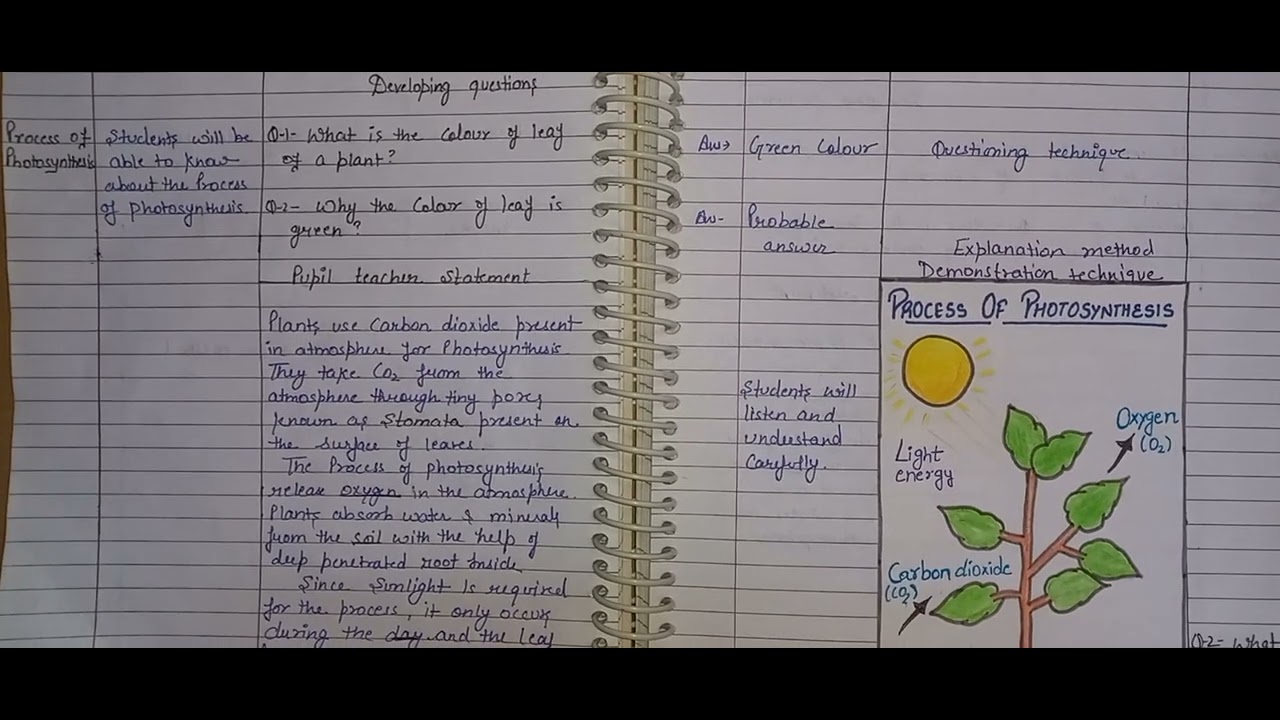 Developing questions
Process of
Photosynthesis
Students will be
able to know
about the Process
of photosynthesis.
Q-1- What is the colour of leaf
of a plant?
Q-2- Why the Colour of leaf is
green?
Pupil teacher statement
Plants use Carbon dioxide present
in atmosphere for Photosynthesis.
They take CO2 from the
atmosphere through tiny pores
known as Stomata present on
the surface of leaves.
The Process of photosynthesis
release oxygen in the atmosphere.
Plants absorb water & minerals
from the soil with the help of
deep penetrated root inside.
Since Sunlight is required
for the process, it only occurs
during the day and the leaf
Aw→ Green Colour
Aw- Probable
answer
Students will
listen and
understand
Carefully.
Questioning technique.
Explanation method
Demonstration technique
PROCESS OF PHOTOSYNTHESIS
Light
energy
Oxygen
(O2)
Carbon dioxide
(CO2)
Q-2- What